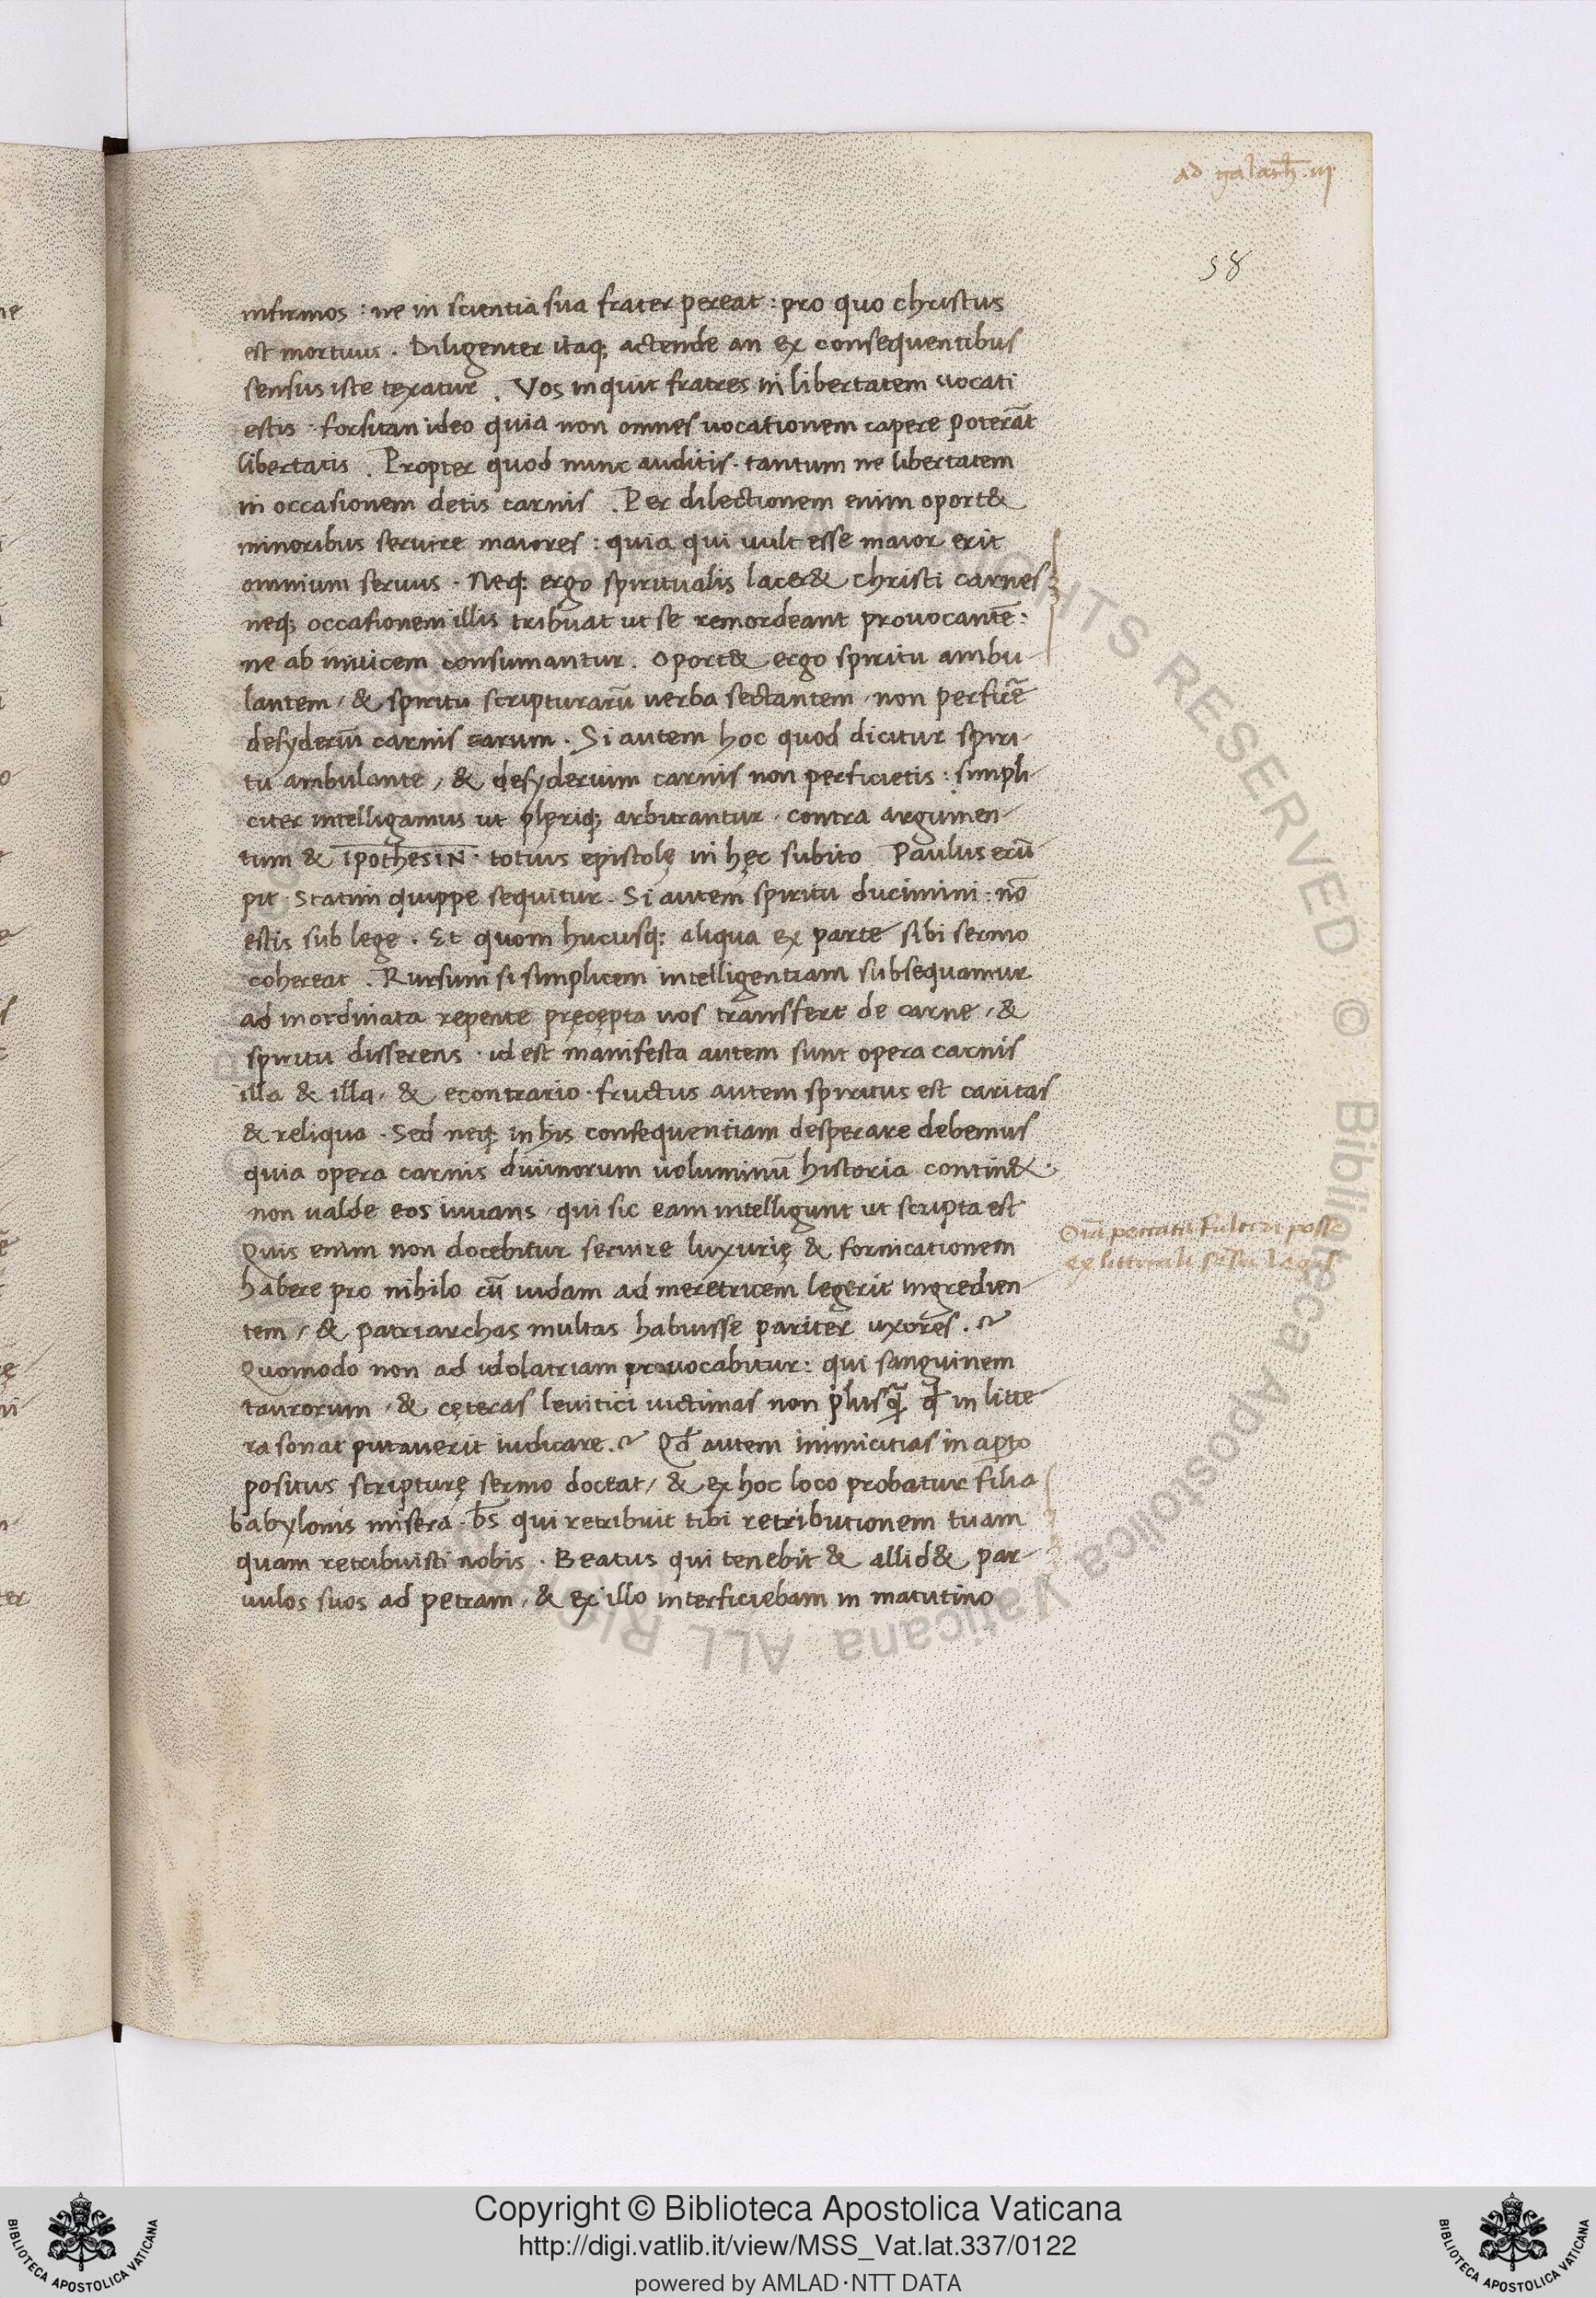 ad galath. iij.
58
infirmos : ne in scientia sua frater pereat : pro quo christus
est mortuus . Diligenter itaq; actende an ex consequentibus
sensus iste texatur . Vos inquit fratres in libertatem vocati
estis · forsitan ideo quia non omnes uocationem capere poterāt
libertatis . Propter quod nunc auditis · tantum ne libertatem
in occasionem detis carnis . Per dilectionem enim oport&
minoribus seruire maiores : quia qui uult esse maior erit
omnium seruus . Neq; ergo spiritualis lacer& christi carnes
neq; occasionem illis tribuat ut se remordeant prouocantē :
ne ab inuicem consumantur . oport& ergo spiritu ambu-
lantem / & spiritu scripturarū uerba sectantem · non perficē
desyderiū carnis earum . Si autem hoc quod dicitur spiri-
tu ambulante / & desyderium carnis non perficietis : simpli-
citer intelligamus ut plęriq; arbitrantur · contra argumen-
tum & ipothesiN · totius epistolę in hęc subito Paulus erū
pit · Statim quippe sequitur . Si autem spiritu ducimini · nō
estis sub lege . Et quom hucusq; aliqua ex parte sibi sermo
cohereat . Rursum si simplicem intelligentiam subsequamur
ad inordinata repente pręcępta nos transfert de carne / &
spiritu disserens · id est manifesta autem sunt opera carnis
illa & illa / & econtrario · fructus autem spiritus est caritas
& reliqua . Sed neq; in his consequentiam desperare debemus
quia opera carnis diuinorum uoluminū historia contin& ·
non ualde eos iuuans · qui sic eam intelligunt ut scripta est
Quis enim non docebitur seruire luxurię & fornicationem
habere pro nihilo cū iudam ad meretricem legerit ingredien-
tem / & patriarchas multas habuisse pariter uxores . ~
Quomodo non ad idolatriam prouocabitur : qui sanguinem
taurorum / & cęteras leuitici uictimas non plusq̄ qđ in litte-
ra sonat putauerit iudicare . ~ Qđ autem inimicitias in apto
positus scripturę sermo doceat / & ex hoc loco probatur filia
babylonis misera · bs̄ qui retribuit tibi retributionem tuam
quam retribuisti nobis . Beatus qui tenebit & allid& par-
uulos suos ad petram / & ex illo interficiebam in matutino
Oīa peccata fulciri posse
ex litterali sēsu Legis
Copyright © Biblioteca Apostolica Vaticana
http://digi.vatlib.it/view/MSS_Vat.lat.337/0122
powered by AMLAD·NTT DATA